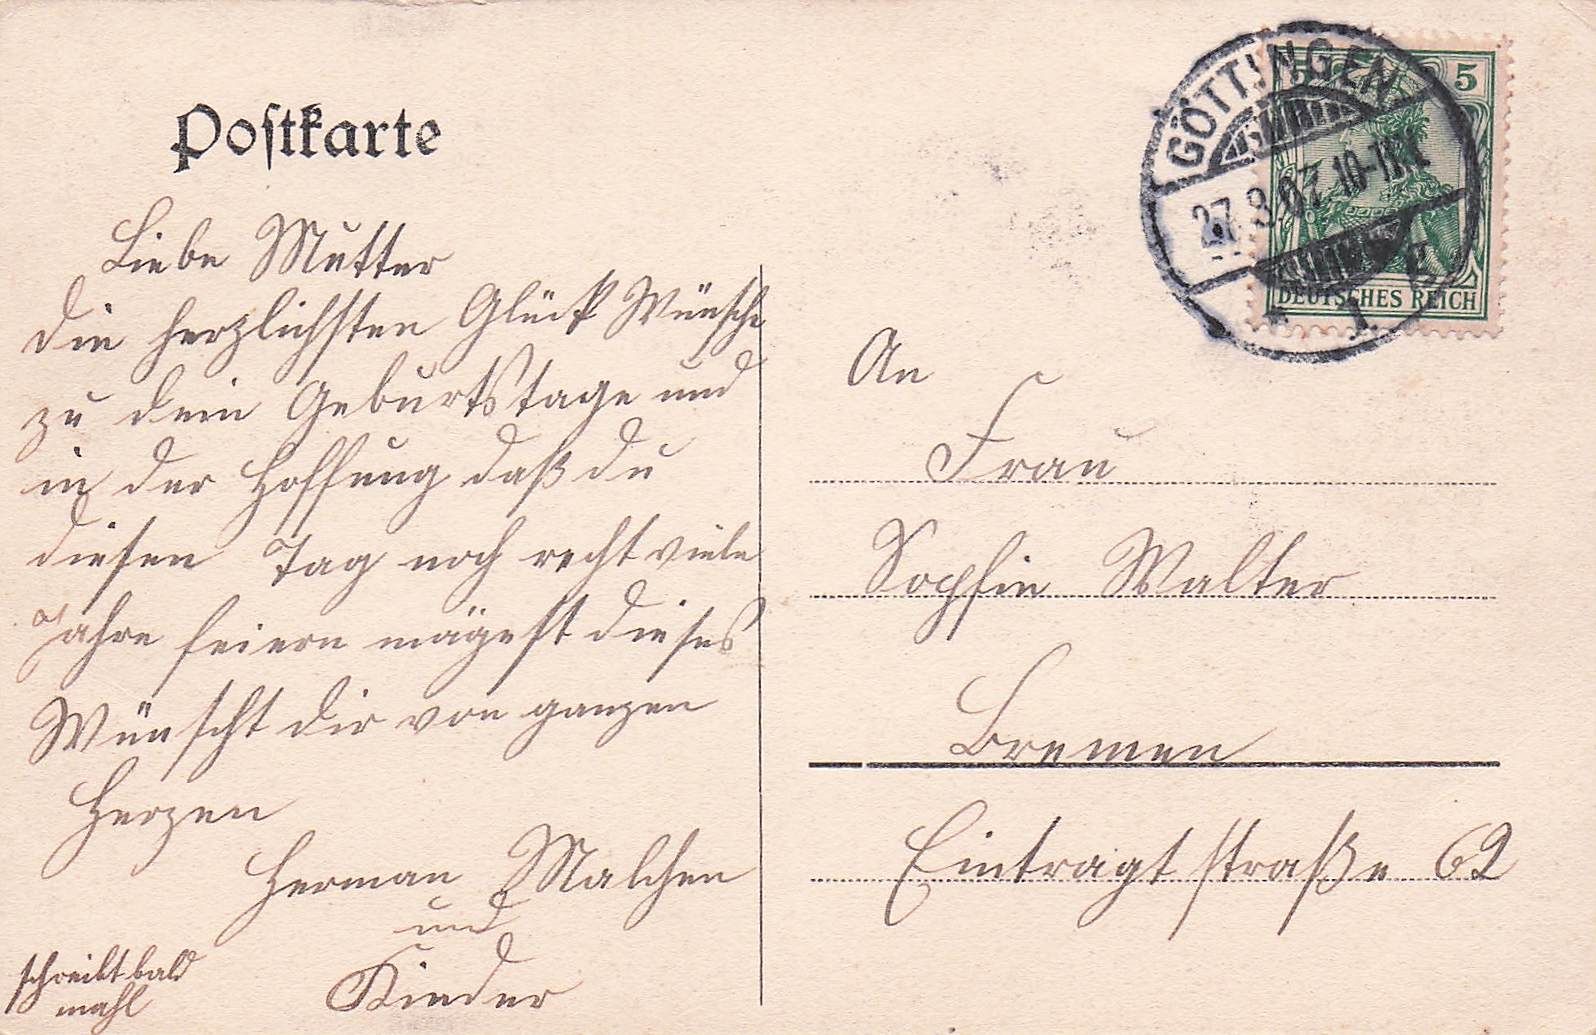 Postkarte
GÖTTINGEN
27.3.07. 10-11V.
1.
5
DEUTSCHES REICH
Liebe Mutter
die herzlichsten Glück Wünsche
zu dein Geburtstage und
in der Hoffung daß du
diesen Tag noch recht viele
Jahre feiern mägest dieses
Wünscht dir von ganzen
Herzen
Herman Malchen
und
Kinder
schreibt bald
mahl
An
Frau
Sophie Walter
Bremen
Eintragtstraße 62